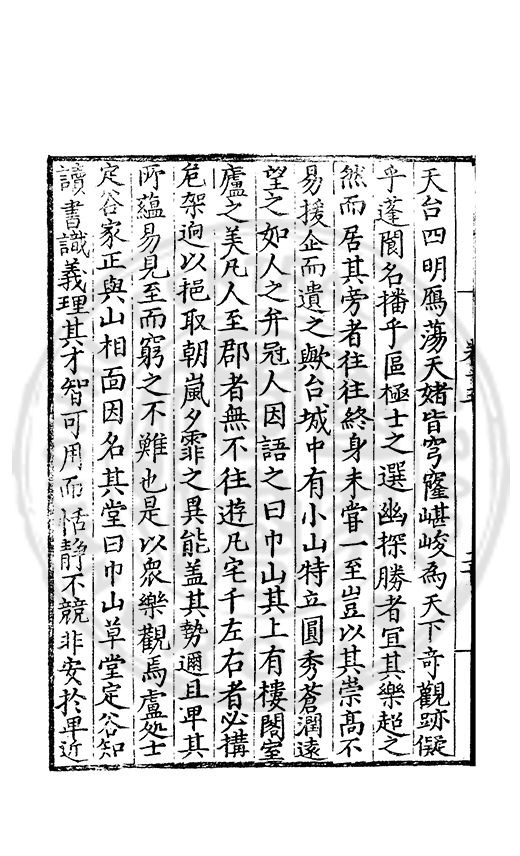 天台四明鴈蕩天姥皆穹窿嵁峻為天下奇觀跡儗
乎蓬閬名播乎區極士之選幽探勝者宜其樂超之
然而居其旁者往往終身未嘗一至豈以其崇高不
易援企而遺之歟台城中有小山特立圓秀蒼潤遠
望之如人之弁冠人因語之曰巾山其上有樓閣室
廬之美凡人至郡者無不往遊凡宅于左右者必搆
危架逈以挹取朝嵐夕霏之異態盖其勢邇且卑其
所蘊易見至而窮之不難也是以衆樂觀焉盧處士
定谷家正與山相面因名其堂曰巾山草堂定谷知
讀書識義理其才智可用而恬静不競非安於卑近